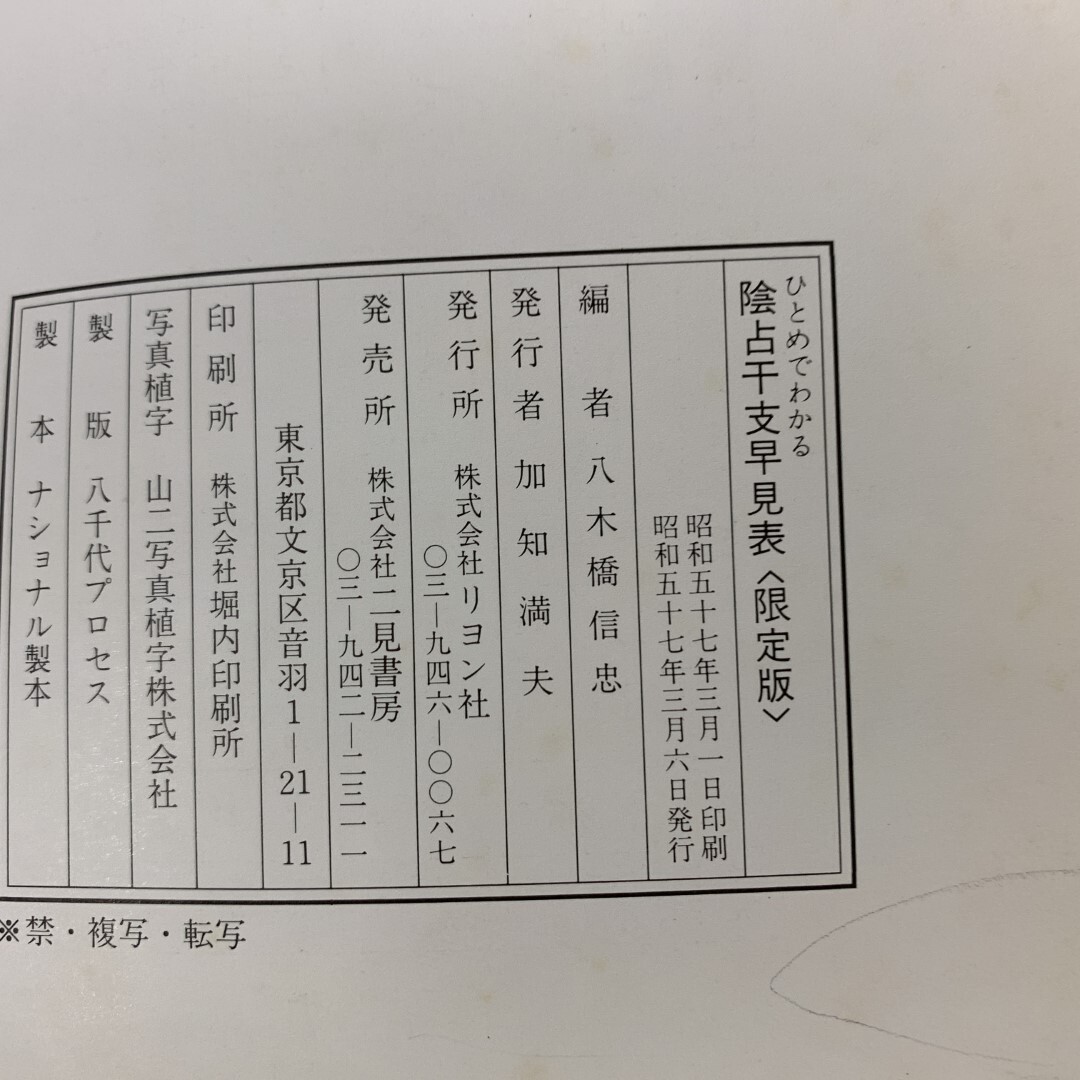 ひとめでわかる
陰占干支早見表〈限定版〉
昭和五十七年三月一日印刷
昭和五十七年三月六日発行
編者 八木橋信忠
発行者 加知満夫
発行所 株式会社リヨン社
〇三―九四六―〇〇六七
発売所 株式会社二見書房
〇三―九四二―二三一一
東京都文京区音羽1―21―11
印刷所 株式会社堀内印刷所
写真植字 山二写真植字株式会社
製版 八千代プロセス
製本 ナショナル製本
※禁・複写・転写